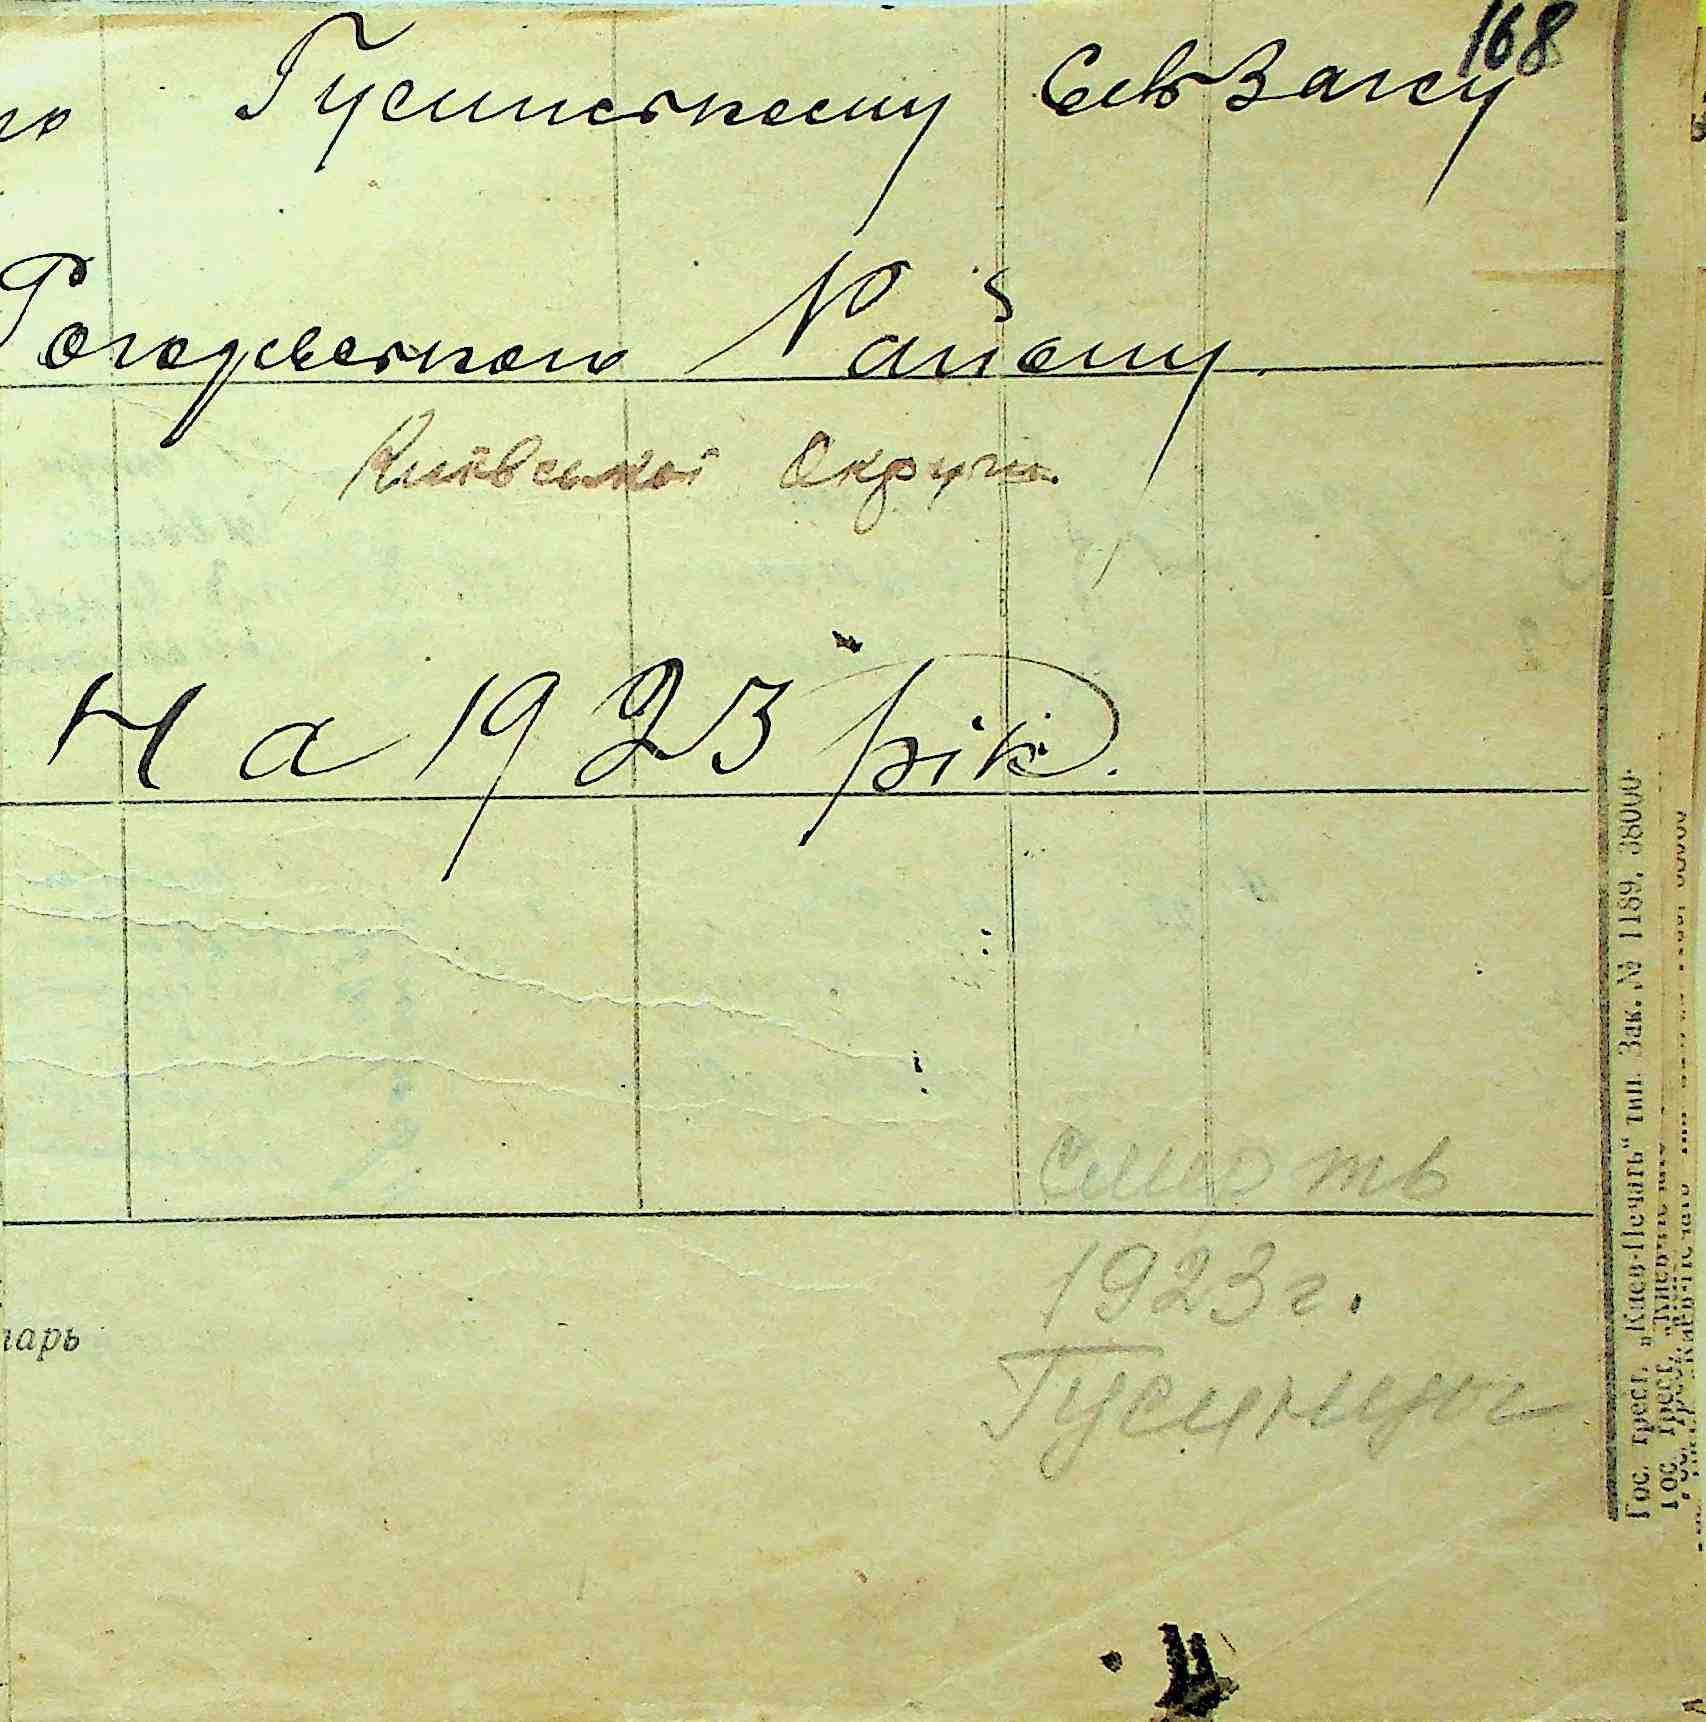 168
по Гусинському СільЗагсу
Рогозівського Району
Київської Округи.
На 1923 рік.
смерть
1923 г.
Гусинцы
тарь
Гос. трест. „Киев-Печать“ тип. Зак. № 1189. 38000.